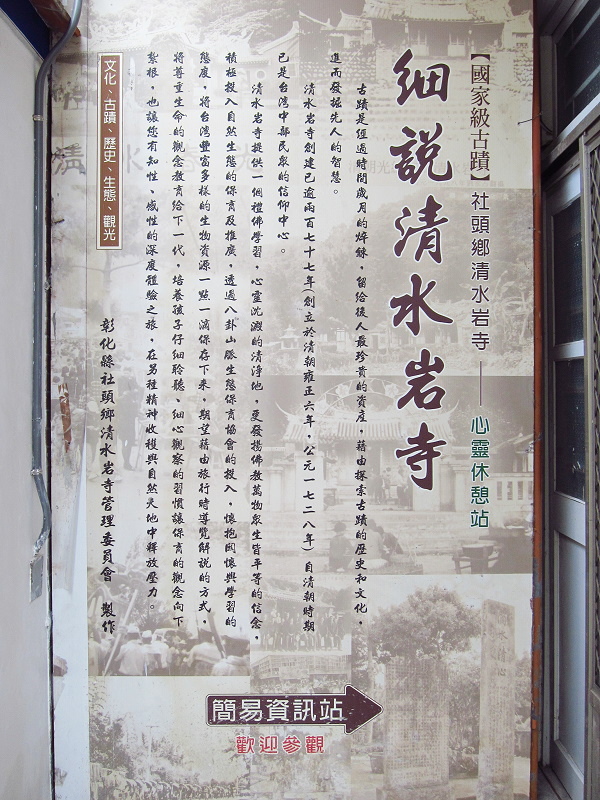 【國家級古蹟】社頭鄉清水岩寺——心靈休憩站
細說清水岩寺
古蹟是經過時間歲月的焠鍊,留給後人最珍貴的資產,藉由探索古蹟的歷史和文化,
進而發掘先人的智慧。
清水岩寺創建已逾兩百七十七年(創立於清朝雍正六年,公元一七二八年)自清朝時期
已是台灣中部民眾的信仰中心。
清水岩寺提供一個禮佛學習,心靈沈澱的清淨地,更發揚佛教萬物眾生皆平等的信念,
積極投入自然生態的保育及推廣,透過八卦山脈生態保育協會的投入,懷抱關懷與學習的
態度,將台灣豐富多樣的生物資源一點一滴保存下來,期望藉由旅行時導覽解說的方式,
將尊重生命的觀念教育給下一代,培養孩子仔細聆聽、細心觀察的習慣讓保育的觀念向下
紮根,也讓您有知性、感性的深度體驗之旅,在另種精神收穫與自然天地中釋放壓力。
彰化縣社頭鄉清水岩寺管理委員會 製作
文化、古蹟、歷史、生態、觀光
簡易資訊站
歡迎參觀